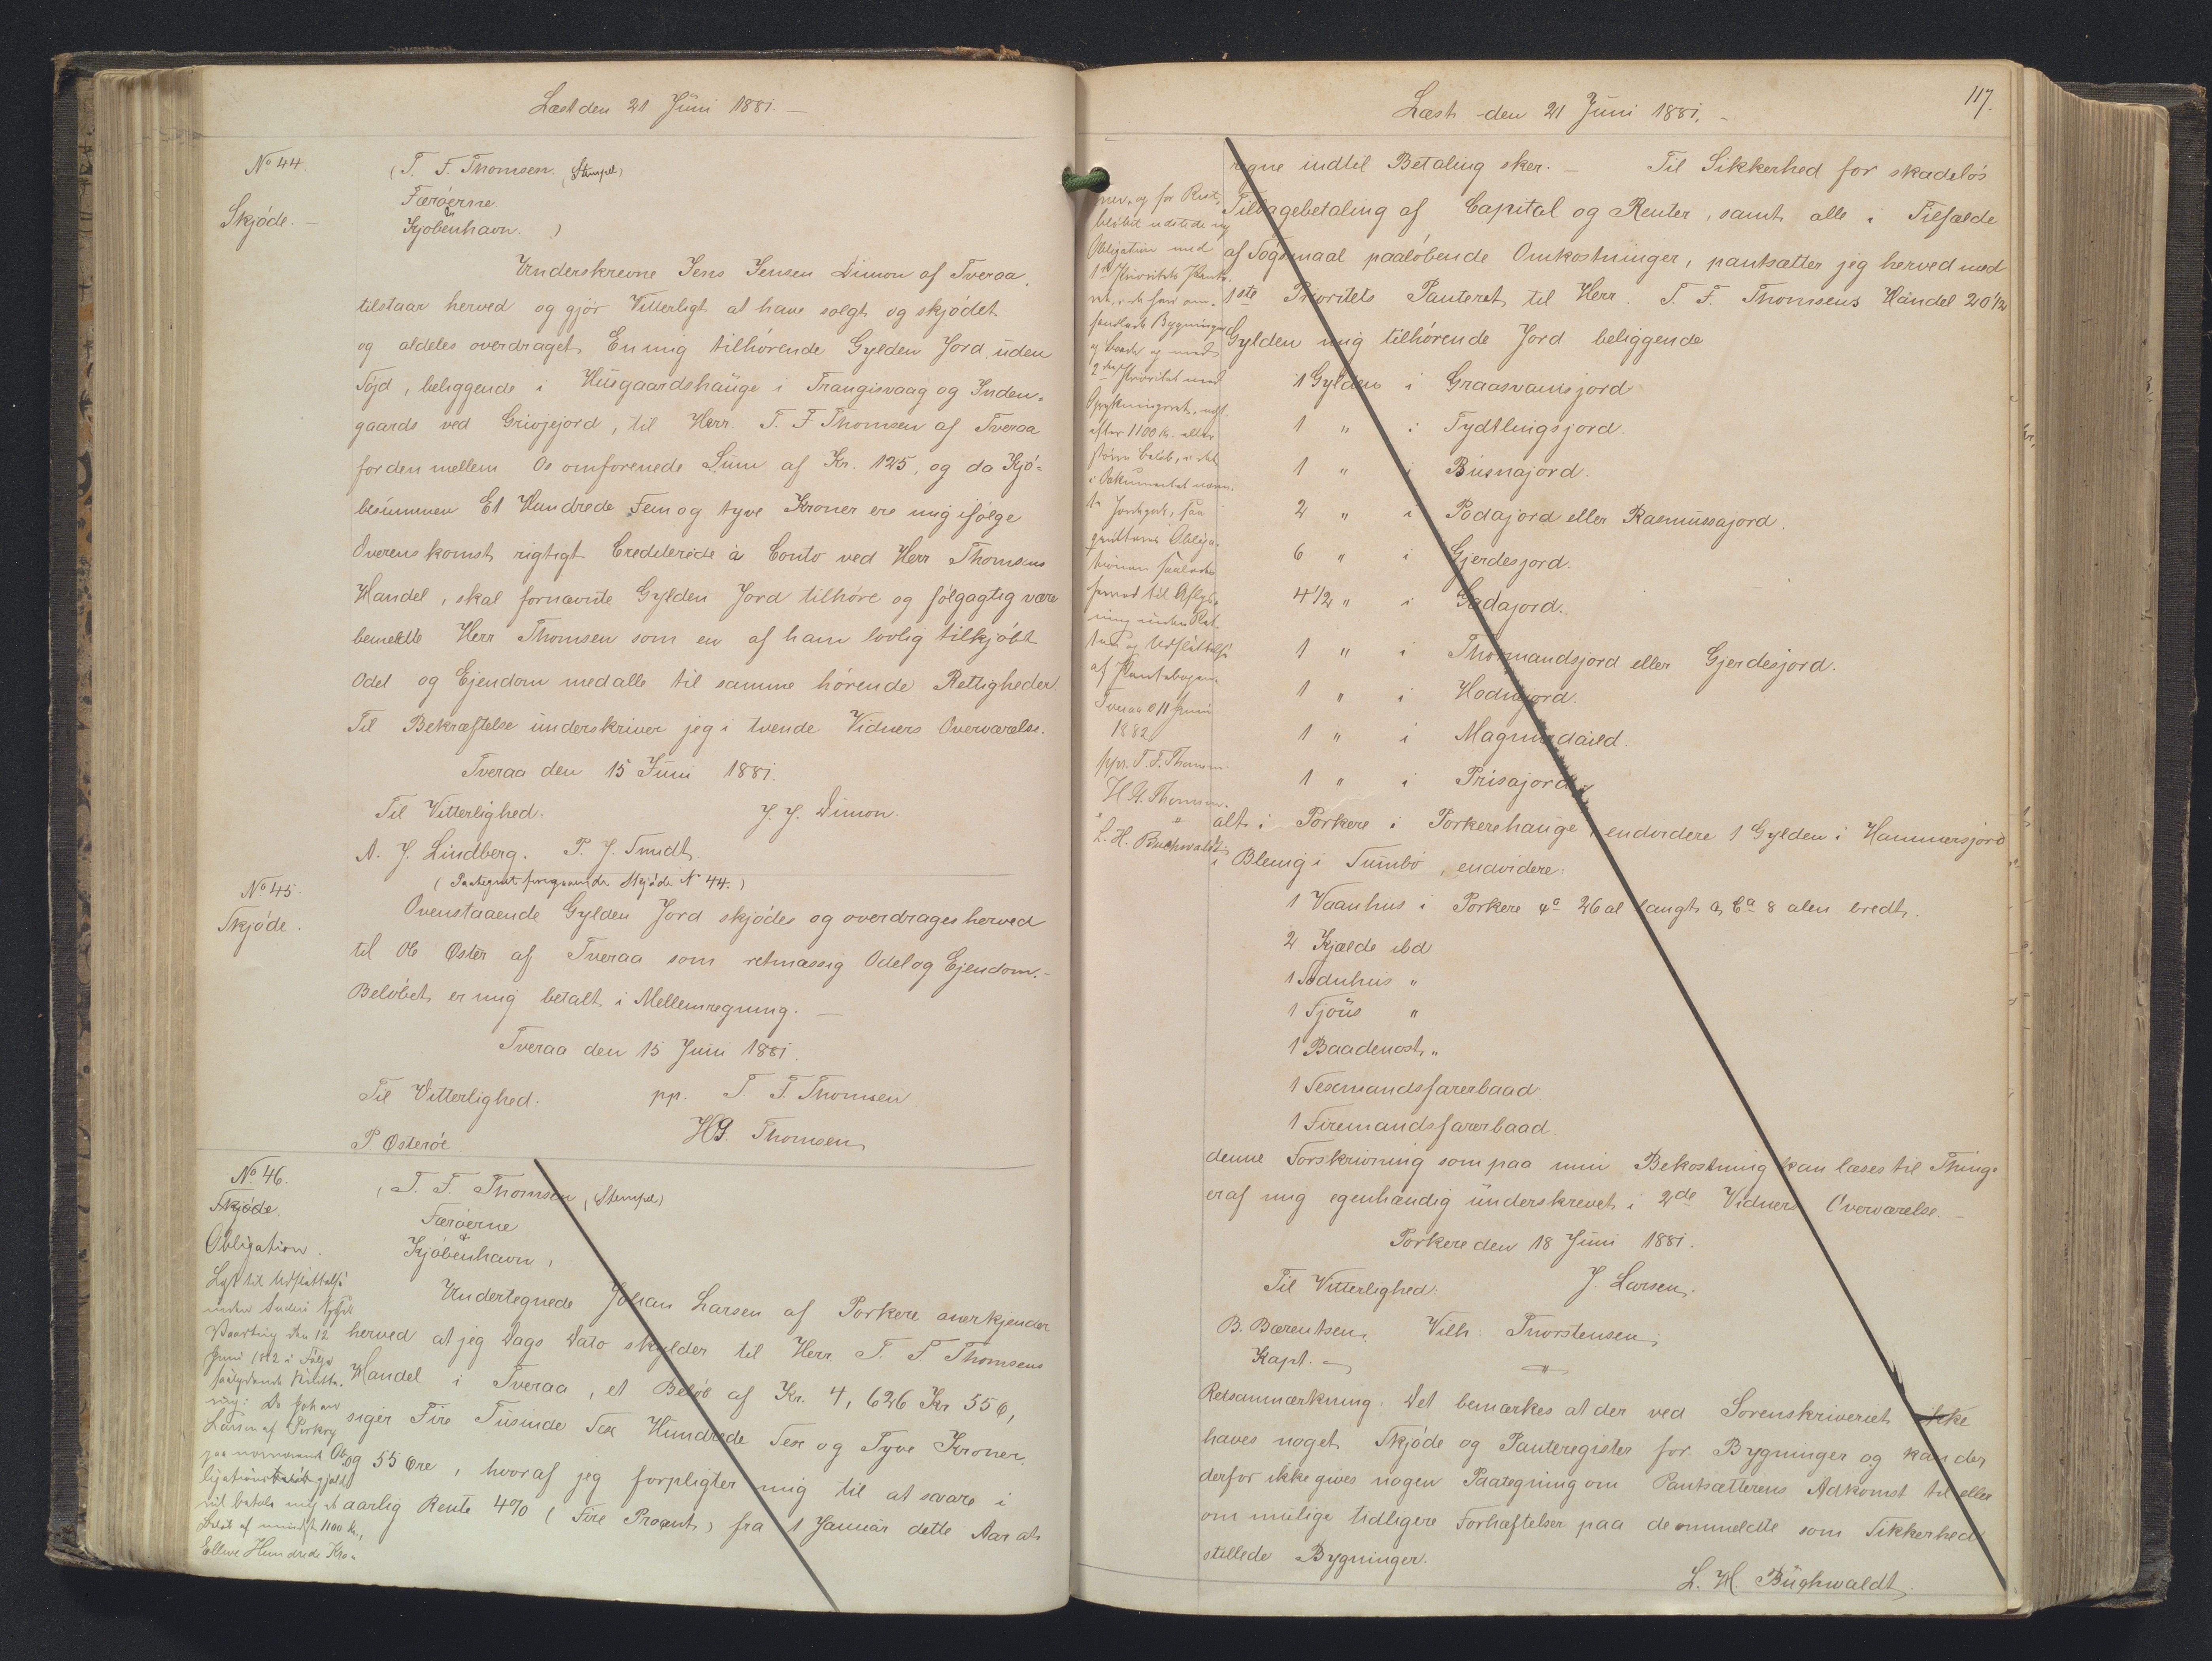 Læst den 21 Juni 1881. —
No 44.
Skjöde. —
(T. F. Thomsen. (Stempel)
Færöerne
&
Kjöbenhavn. )
Underskrevne Jens Jensen Dimon af Tveraa,
tilstaar herved og gjör Vitterligt at have solgt og skjödet
og aldeles overdraget En mig tilhörende Gylden Jord, uden
Föjd, beliggende i Húsgaardshauge i Trangisvaag og Inden-
gaards ved Grivjejord, til Herr. T. F. Thomsen af Tveraa
for den mellem Os omforenede Sum af Kr. 125, og da Kjö-
besummen Et Hundrede Fem og tyve Kroner ere mig ifølge
Overenskomst rigtigt Crediterede à Conto ved Herr Thomsens
Handel, skal fornævnte Gylden Jord tilhöre og følgagtig være
bemeldte Herr Thomsen som en af ham lovlig tilkjöbt
Odel og Ejendom med alle til samme hörende Rettigheder.
Til Bekræftelse underskriver jeg i tvende Vidners Overværelse.
Tveraa den 15 Juni 1881.
Til Vitterlighed: J. J. Dimon.
A. J. Lindberg. P. J. Smidt.
(Paategnet foregaaende Skjöde No 44.)
No 45.
Skjöde.
Ovenstaaende Gylden Jord skjödes og overdrages herved
til Ole Öster af Tveraa som retmæssig Odel og Ejendom. —
Belöbet er mig betalt i Mellemregning. —
Tveraa den 15 Juni 1881.
Til Vitterlighed: pp. T. F. Thomsen
P Österöe H G. Thomsen
No 46.
Skjöde.
Obligation.
(T. F. Thomsen, (Stempel)
Færöerne
&
Kjöbenhavn)
Undertegnede Johan Larsen af Porkere anerkjender
herved at jeg Dags Dato skylder til Herr T. F. Thomsens
Handel i Tveraa, et Belöb af Kr. 4,626 Kr 55 ö,
siger Fire Tusinde Sex Hundrede Sex og Tyve Kroner
og 55 Öre, hvoraf jeg forpligter mig til at svare i
aarlig Rente 4% (Fire Procent) fra 1 Januar dette Aar at
Lyst til Udslettelse
under Suderö Syssels
Vaarting den 12
Juni 1882 i Følge
saalydende Kvitte-
ring: Da Johan
Larsen af Porkere
paa nærværende Ob-
ligationsbelöb gjeldt
vil betale mig et
Belöb af mindst 1100 Kr.,
Elleve Hundrede Kro-
117.
Læst den 21 Juni 1881. —
ner, og for Rest-
belöbet udstede ny
Obligation med
1ste Prioritets Pant-
ret, i de heri om-
handlede Bygninger
og Baade og med
2den Prioritet med
Oprykningsret, udf.
efter 1100 Kr. eller
större Belöb, i det
i Dokumentet nævn-
te Jordegods, saa
qvitteres Obliga-
tionen saaledes
herved til Aflys-
ning inden Ret-
ten og Udslettelse
af Pantebogen.
Tveraa d 11 Juni
1882
ppr. T. F. Thomsen.
H. G. Thomsen.
L. H. Buchwaldt
regne indtil Betaling sker. — Til Sikkerhed for skadelös
Tilbagebetaling af Capital og Renter, samt alle i Tilfælde
af Sögsmaal paalöbende Omkostninger, pantsætter jeg herved med
1ste Prioritets Panteret til Herr. T. F. Thomsens Handel 20 1/2
Gylden mig tilhörende Jord beliggende
1 Gylden i Graasvansjord
1 " i Tydtlingsjord.
1 " i Búsnajord.
2 " i Podajord eller Rasmussajord.
6 " i Gjerdesjord.
4 1/2 " i Gadajord.
1 " i Thormandsjord eller Gjerdesjord.
1 " i Hodnajord.
1 " i Magnusdaild.
1 " i Prisajord,
alt i Porkere i Porkerehauge, endvidere 1 Gylden i Hammersjord
i Blemg i Sumbö, endvidere:
1 Vaanhus i Porkere ca 26 al langt & Ca 8 alen bredt.
2 Kjælde ibd
1 Sodnhus "
1 Fjöús "
1 Baadenöst "
1 Sexmandsfarerbaad
1 Firemandsfarerbaad.
denne Forskrivning som paa min Bekostning kan læses til Thinge
er af mig egenhændig underskrevet i 2de Vidners Overværelse. —
Porkere den 18 Juni 1881.
Til Vitterlighed: J. Larsen.
B. Bærentsen, Vilh: Thorstensen,
Kapt. — "
Retsanmærkning: Det bemærkes at der ved Sorenskriveriet ikke
haves noget Skjöde og Panteregister for Bygninger og kan der
derfor ikke gives nogen Paategning om Pantsætterens Adkomst til eller
om mulige tidligere Forhæftelser paa de ommeldte som Sikkerhed
stillede Bygninger.
L. H. Buchwaldt.